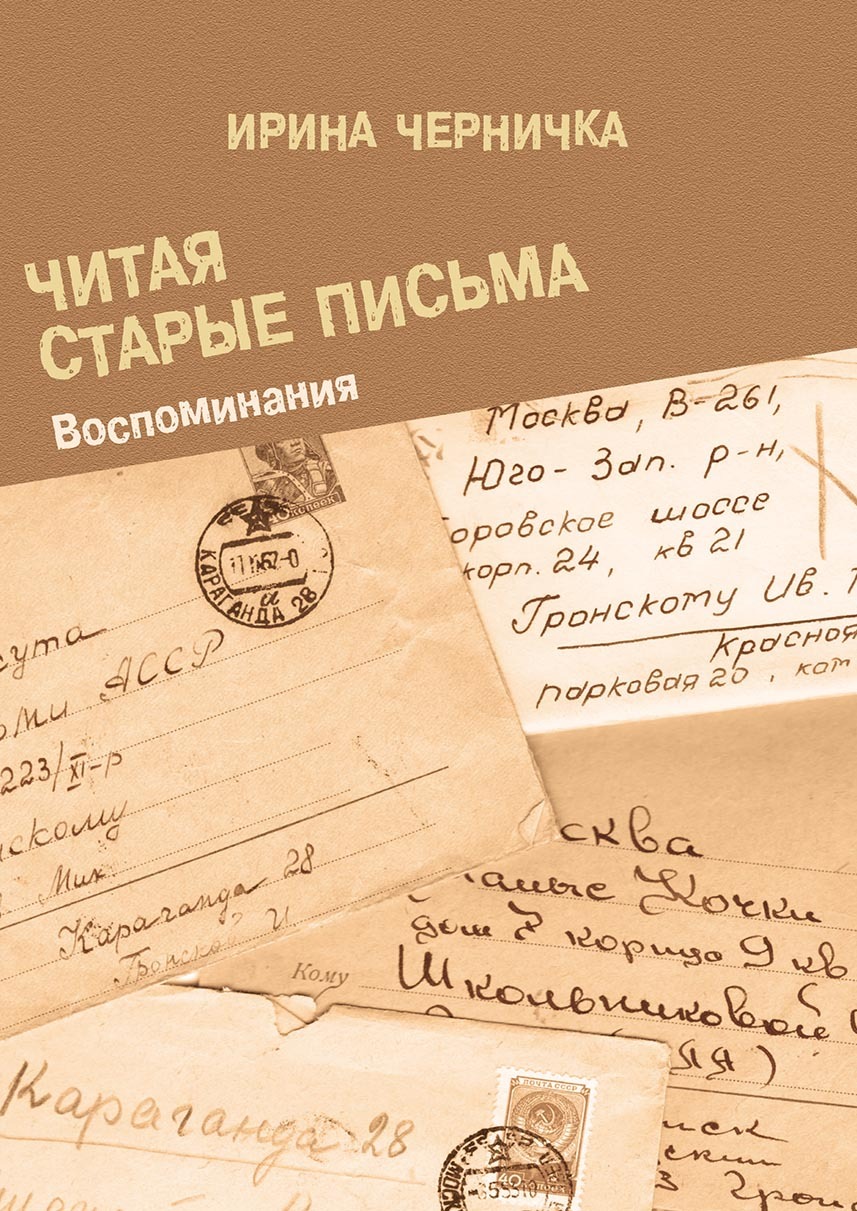 ИРИНА ЧЕРНИЧКА
ЧИТАЯ
СТАРЫЕ ПИСЬМА
Воспоминания
Москва, В-261,
Юго-Зап. р-н,
оровское шоссе
корп. 24, кв 21
Гронскому Ив.
Красной
парковая 20, ком
КАРАГАНДА 28
сута
оми АССР
223/XI-р
нскому
Мих
Караганда 28
Гронской И.
сква
Малые Кочки
дом 7 корпус 9 кв
Кому Школьниковой
ЯЯ)
Караганда 28
ПОЧТА СССР
40 КОПЕЕК
МОСК
иск
ский
3